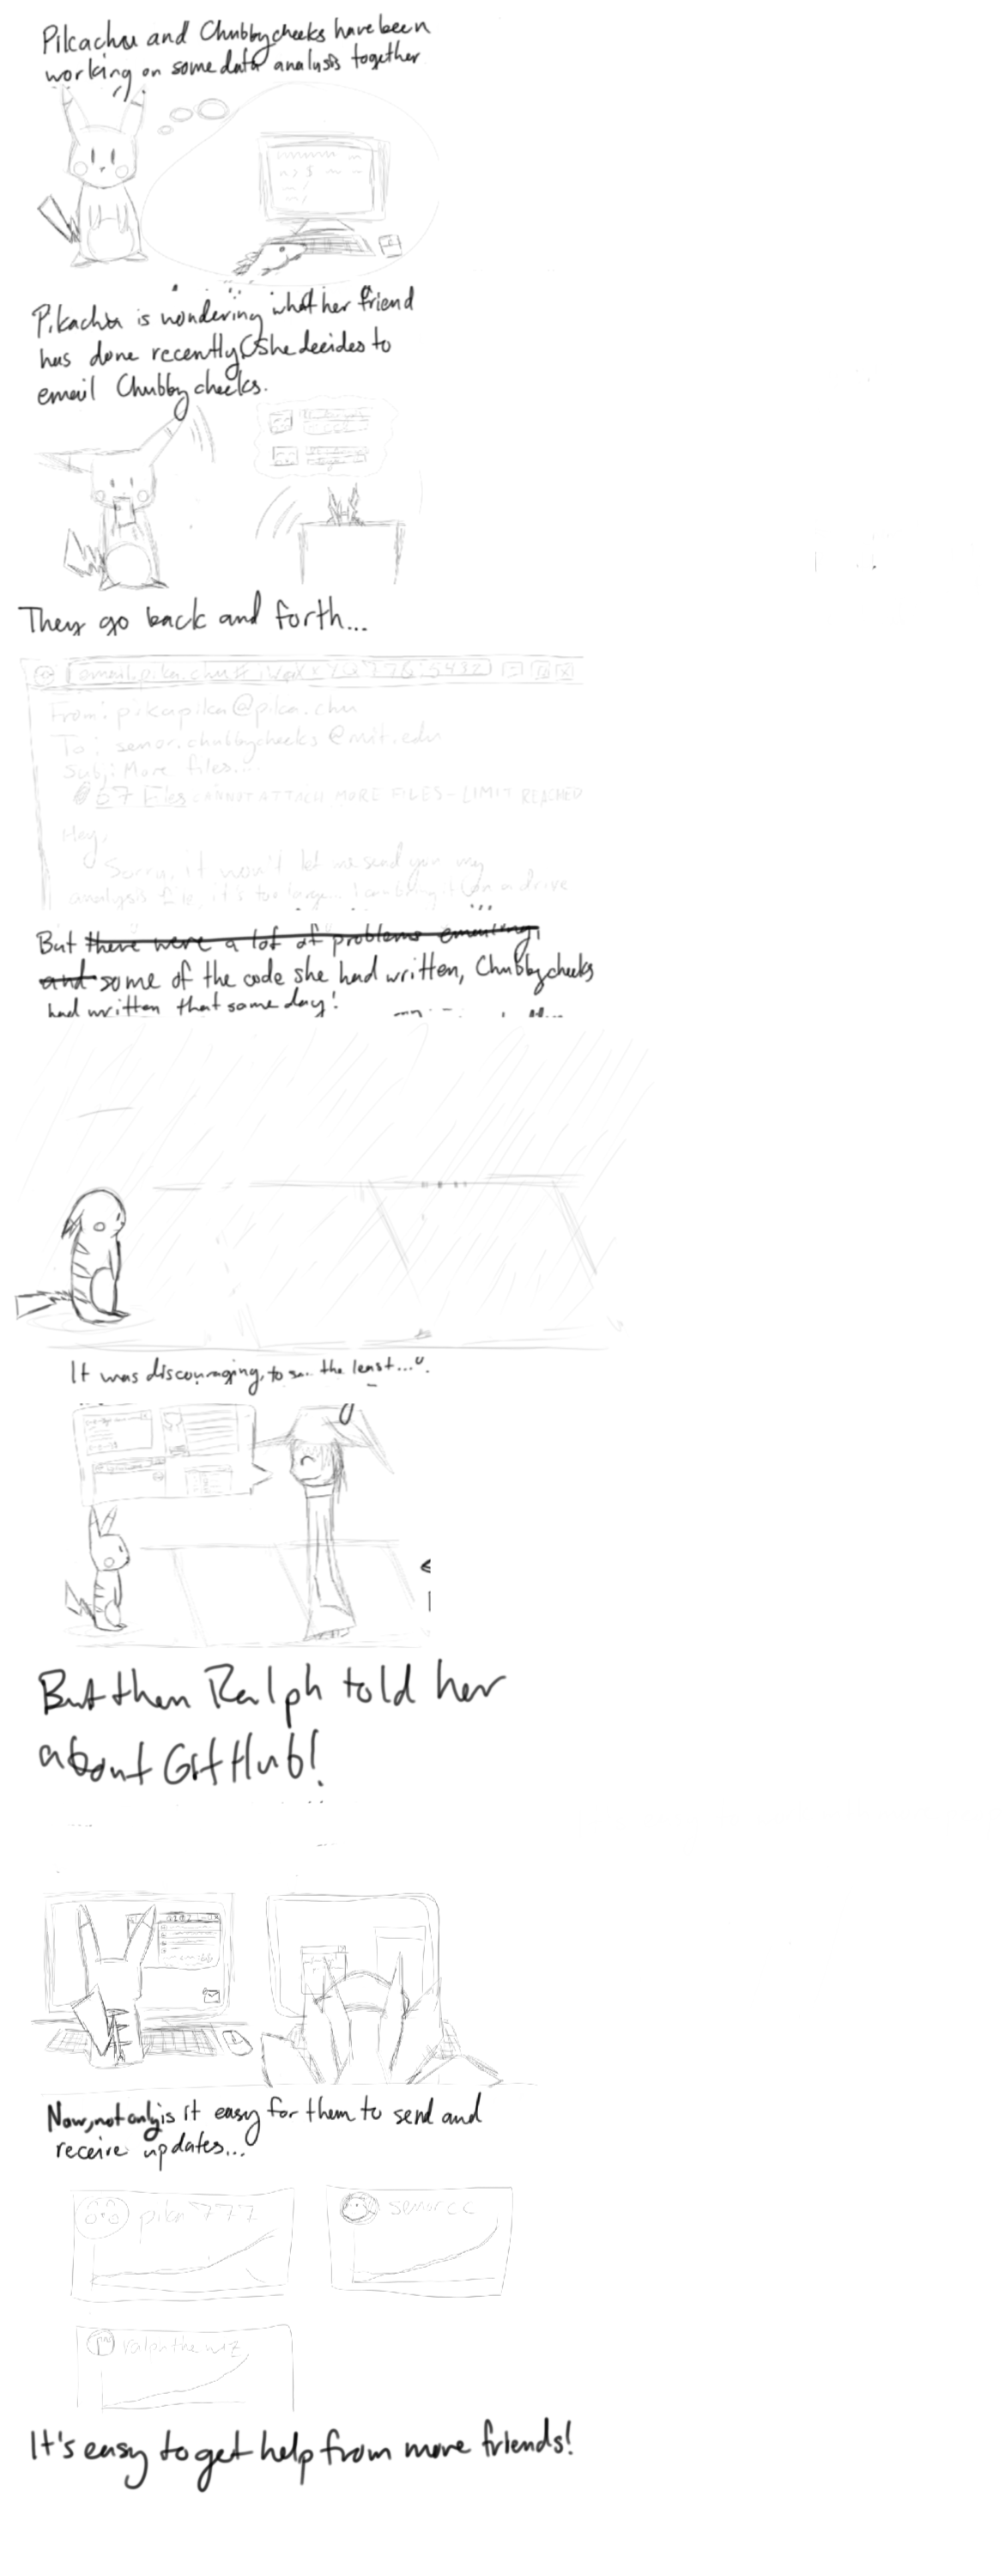 Pikachu and Chubbycheeks have been
working on some data analysis together
Pikachu is wondering what her friend
has done recently, she decides to
email Chubbycheeks.
They go back and forth...
From: pikapika@pika.chu
To: senor.chubbycheeks@mit.edu
Subj: More files...
67 Files CANNOT ATTACH MORE FILES - LIMIT REACHED
Hey,
Sorry, it won't let me send you my
analysis file, it's too large... I can bring it on a drive
But there were a lot of problems emailing,
and some of the code she had written, Chubbycheeks
had written that same day!
It was discouraging, to say the least...
But then Ralph told her
about GitHub!
Now, not only is it easy for them to send and
receive updates...
pika777
senorcc
ralphthewiz
It's easy to get help from more friends!